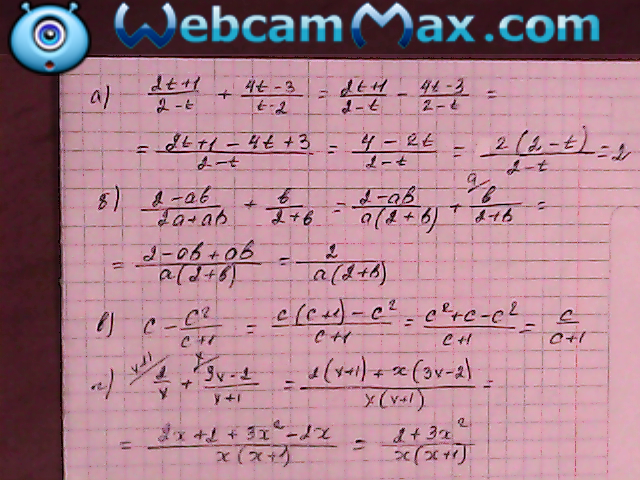 WebcamMax.com
а) (2t+1)/(2-t) + (4t-3)/(t-2) = (2t+1)/(2-t) - (4t-3)/(2-t) =
= (2t+1-4t+3)/(2-t) = (4-2t)/(2-t) = 2(2-t)/(2-t) = 2
б) (2-ab)/(2a+ab) + b/(2+b) = (2-ab)/(a(2+b)) + a/ b/(2+b) =
= (2-ab+ab)/(a(2+b)) = 2/(a(2+b))
в) c - c²/(c+1) = (c(c+1)-c²)/(c+1) = (c²+c-c²)/(c+1) = c/(c+1)
г) x+1/ 2/x + x/ (3x-2)/(x+1) = (2(x+1)+x(3x-2))/(x(x+1)) =
= (2x+2+3x²-2x)/(x(x+1)) = (2+3x²)/(x(x+1))